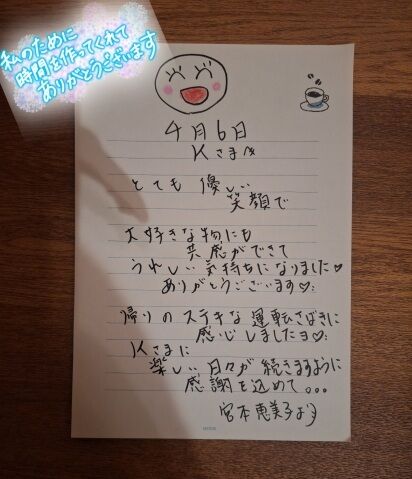 私のために
時間を作ってくれて
ありがとうございます
4月6日
Kさまへ
とても優しい
笑顔で
大好きな物にも
共感ができて
うれしい気持ちになりました♡
ありがとうございます♡
帰りのステキな運転さばきに
感心しましたヨ♡
Kさまに
楽しい日々が続きますように
感謝を込めて。。。
宮本恵美子より